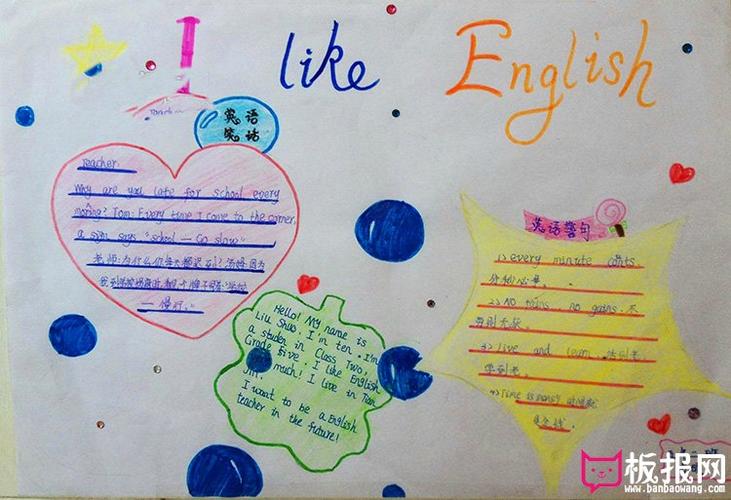 I like English
英语
笑话
teacher:
Why are you late for school every
morning? Tom: Every time I come to the corner,
a sign says "school — Go slow".
老师:为什么你每天都迟到?汤姆:因为
— 慢行."
Hello! My name is
Liu Shuo, I'm ten. I'm
a studen in Class Two,
Grade Five. I like English
much! I live in Tian
Jin.
I want to be a English
teacher in the future!
英语警句
1) every minute counts
分秒必争。
2) No pains, no gains. 不
劳则无获。
3) live and learn. 活到老,
学到老。
4) Time is money 时间就
是金钱。
板报网
www.banbaowang.com